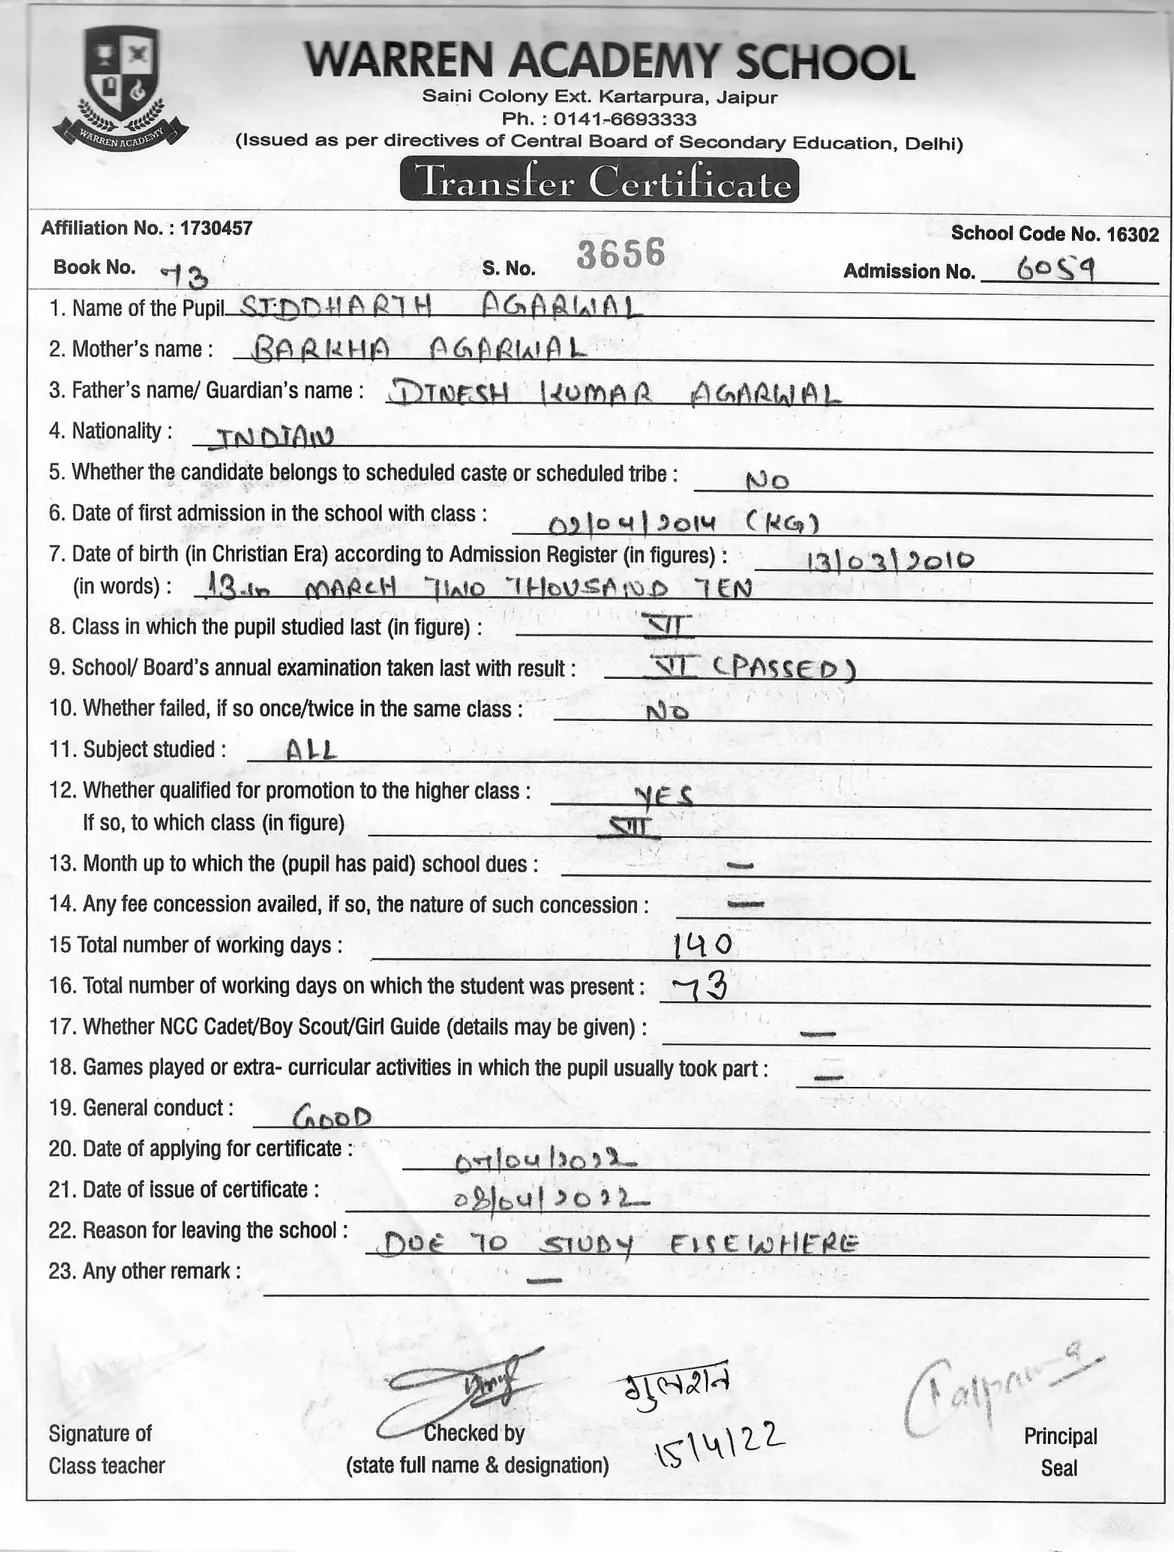 WARREN ACADEMY
WARREN ACADEMY SCHOOL
Saini Colony Ext. Kartarpura, Jaipur
Ph. : 0141-6693333
(Issued as per directives of Central Board of Secondary Education, Delhi)
Transfer Certificate
Affiliation No. : 1730457 School Code No. 16302
Book No. 73 S. No. 3656 Admission No. 6059
1. Name of the Pupil SIDDHARTH AGARWAL
2. Mother's name : BARKHA AGARWAL
3. Father's name/ Guardian's name : DINESH KUMAR AGARWAL
4. Nationality : INDIAN
5. Whether the candidate belongs to scheduled caste or scheduled tribe : NO
6. Date of first admission in the school with class : 02/04/2014 (KG)
7. Date of birth (in Christian Era) according to Admission Register (in figures) : 13/03/2010
(in words) : 13th MARCH TWO THOUSAND TEN
8. Class in which the pupil studied last (in figure) : VI
9. School/ Board's annual examination taken last with result : VI (PASSED)
10. Whether failed, if so once/twice in the same class : NO
11. Subject studied : ALL
12. Whether qualified for promotion to the higher class : YES
If so, to which class (in figure) VII
13. Month up to which the (pupil has paid) school dues : —
14. Any fee concession availed, if so, the nature of such concession : —
15 Total number of working days : 140
16. Total number of working days on which the student was present : 73
17. Whether NCC Cadet/Boy Scout/Girl Guide (details may be given) : —
18. Games played or extra- curricular activities in which the pupil usually took part : —
19. General conduct : GOOD
20. Date of applying for certificate : 07/04/2022
21. Date of issue of certificate : 08/04/2022
22. Reason for leaving the school : DUE TO STUDY ELSEWHERE
23. Any other remark : —
गुलशन
Kalpana
Signature of Checked by 15/4/22 Principal
Class teacher (state full name & designation) Seal